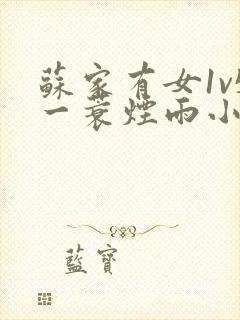 蘇家有女1v1
一蓑煙雨小
藍寶